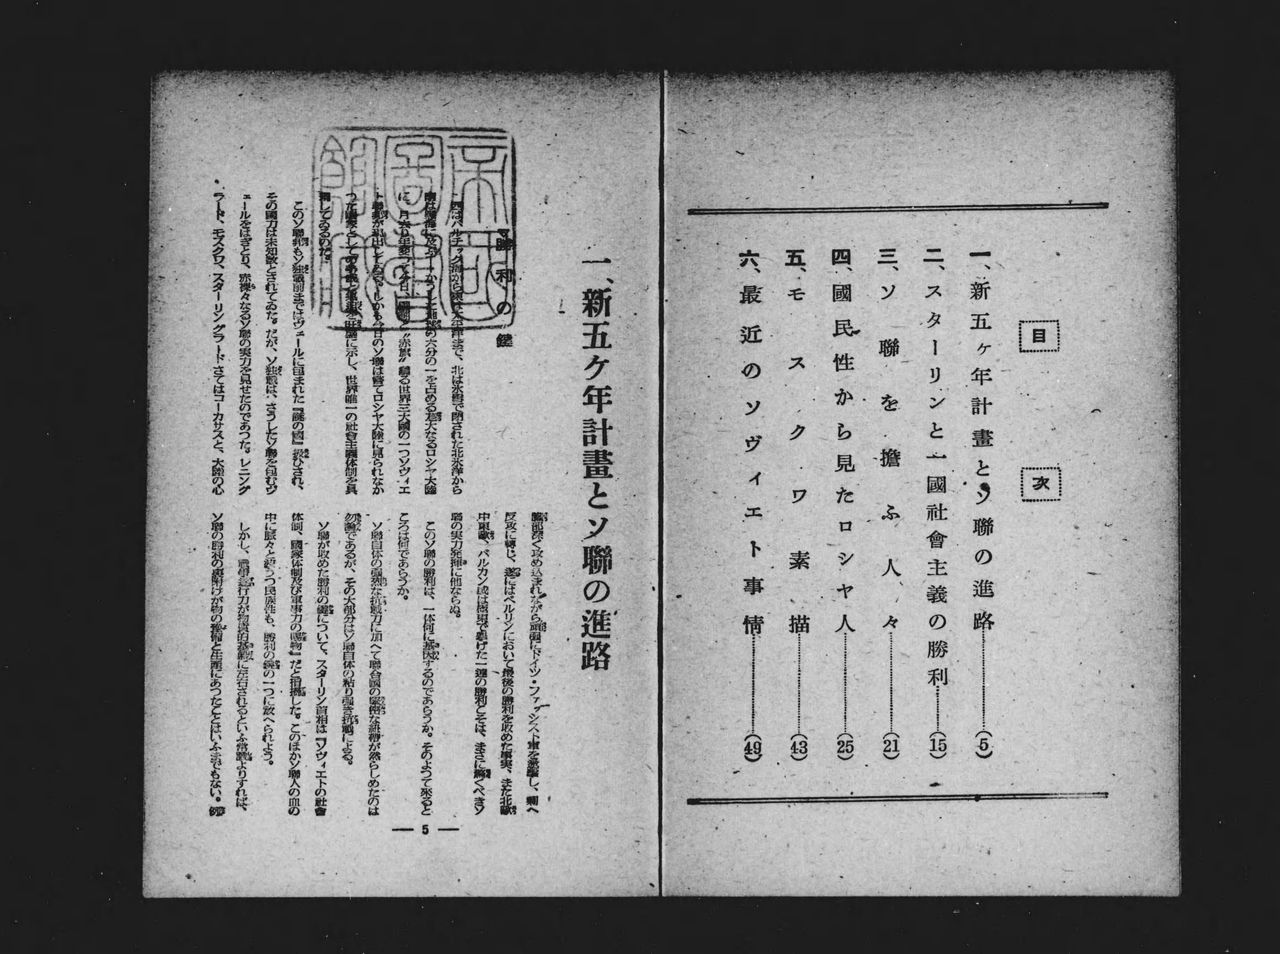 目次
一、新五ヶ年計畫とソ聯の進路(5)
二、スターリンと一國社會主義の勝利(15)
三、ソ聯を擔ふ人々(21)
四、國民性から見たロシヤ人(25)
五、モスクワ素描(43)
六、最近のソヴィエト事情(49)
一、新五ケ年計畫とソ聯の進路
勝利の鍵
西はバルチック海から東は太平洋まで、北は氷雪で閉された北氷洋から
の六分の一を占める厖大なるロシヤ大陸
る世界三大國の一つソヴィエ
今日のソ聯は嘗てロシヤ大陸に見られなか
に示し、世界唯一の社會主義体制を具
してゐるのだ。
このソ聯邦もソ独戰前まではヴェールに包まれた『謎の國』扱ひされ、
その國力は未知數とされてゐた。だが、ソ独戰は、さうしたソ聯を包むヴ
ェールをはぎとり、赤裸々なるソ聯の実力を見せたのであつた。レニング
ラード、モスクワ、スターリングラードさてはコーカサスと、大陸の心
臟部深く攻め込まれながら頑强にドイツ・ファッシスト軍を激撃し、
反攻に轉じ、遂にはベルリンにおいて最後の勝利を收めた事実、また北歐
中東歐、バルカン或は極東で挙げた一連の勝利こそは、まさに驚くべきソ
聯の実力発揮に他ならぬ。
このソ聯の勝利は、一体何に基因するのであらうか。そのよつて來ると
ころは何であらうか。
ソ聯自体の强烈な抗戰力に加へて聯合國の緊密な紐帶が然らしめたのは
勿論であるが、その大部分はソ聯自体の粘り强き抗戰による。
ソ聯が收めた勝利の鍵について、スターリン首相は『ソヴィエトの社會
体制、國家体制及び軍事力の賜物』だと指摘した。このほかソ聯人の血の
中に脈々と搏うつ民族性も、勝利の鍵の一つに敎へられよう。
しかし、戰爭遂行力が物質的基礎に左右されるといふ常識よりすれば、
ソ聯の勝利の裏附けが物の豫備と生產にあつたことはいふまでもない。
— 5 —